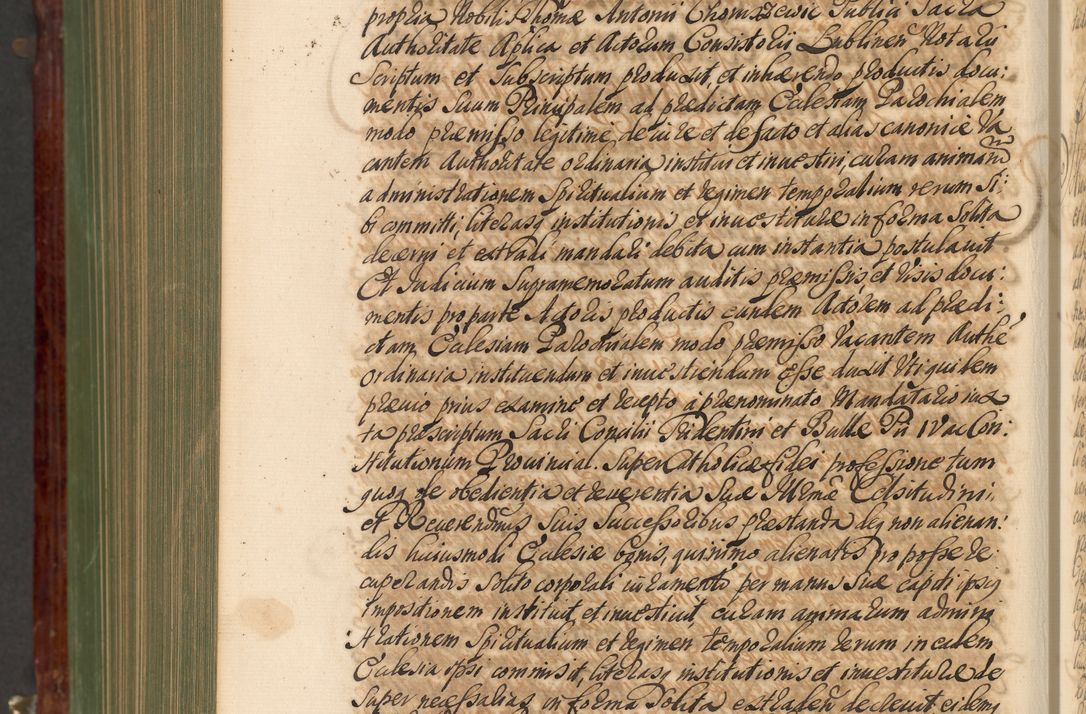 propria Nobilis Thomæ Antonii Chomszewic Publici Sacra
Authoritate Aplica et Actorum Consistorii Lublinen Notarii
Scriptum et Subscriptum produxit, et inhærendo productis docu:
mentis Suum Principalem ad prædictam Ecclesiam Parochialem
modo præmisso legitime de iure et de facto et alias canonicè Va
cantem Authoritate ordinaria institui et inuestiri, curam animarū
administrationem Spiritualium et regimen temporalium rerum Si:
bi committi, literasq institutionis et inuestituræ in forma Solita
decerni et extradi mandari debita cum instantia postulauit
Et Iudicium Supramemoratum auditis præmissis, et visis docu:
mentis pro parte Actoris productis eundem Actorem ad prædi:
ctam Ecclesiam Parochialem modo præmisso Vacantem Authē
Ordinaria instituendum et inuestiendum esse duxit Vti quidem
præuio prius examine et recepto à prænominato Mandatario iux
ta præscriptum Sacri Concilii Tridentini et Bullæ Pii IV ac Con:
stitutionum Prouincial. Super Catholicæ fidei professione tum
quoq de obedientia et reuerentia Suæ Illmæ Celsitudini,
et Reuerendmis Suis Successoribus præstanda deq non alienan:
dis huiusmodi Ecclesiæ bonis, quinimo alienatis pro posse re:
cuperandis Solito corporali iuramento per manus Suæ capiti ipsiq
impositionem instituit, et inuestiuit curam animarum admini
strationem Spiritualium et regimen temporalium rerum in eadem
Ecclesia ipsi commisit, literasq institutionis et inuestituræ de
super necessarias in forma Solita extraden decreuit eidemq